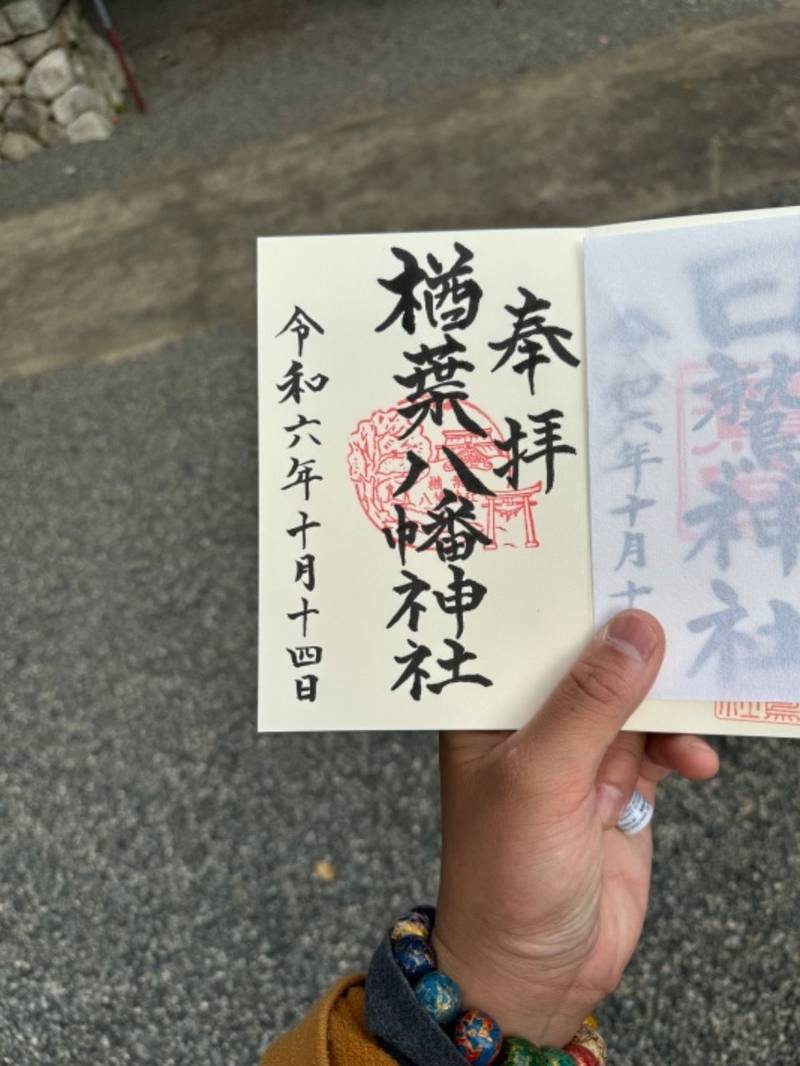 奉拝
楢葉八幡神社
令和六年十月十四日
鷲神社
令和六年十月十